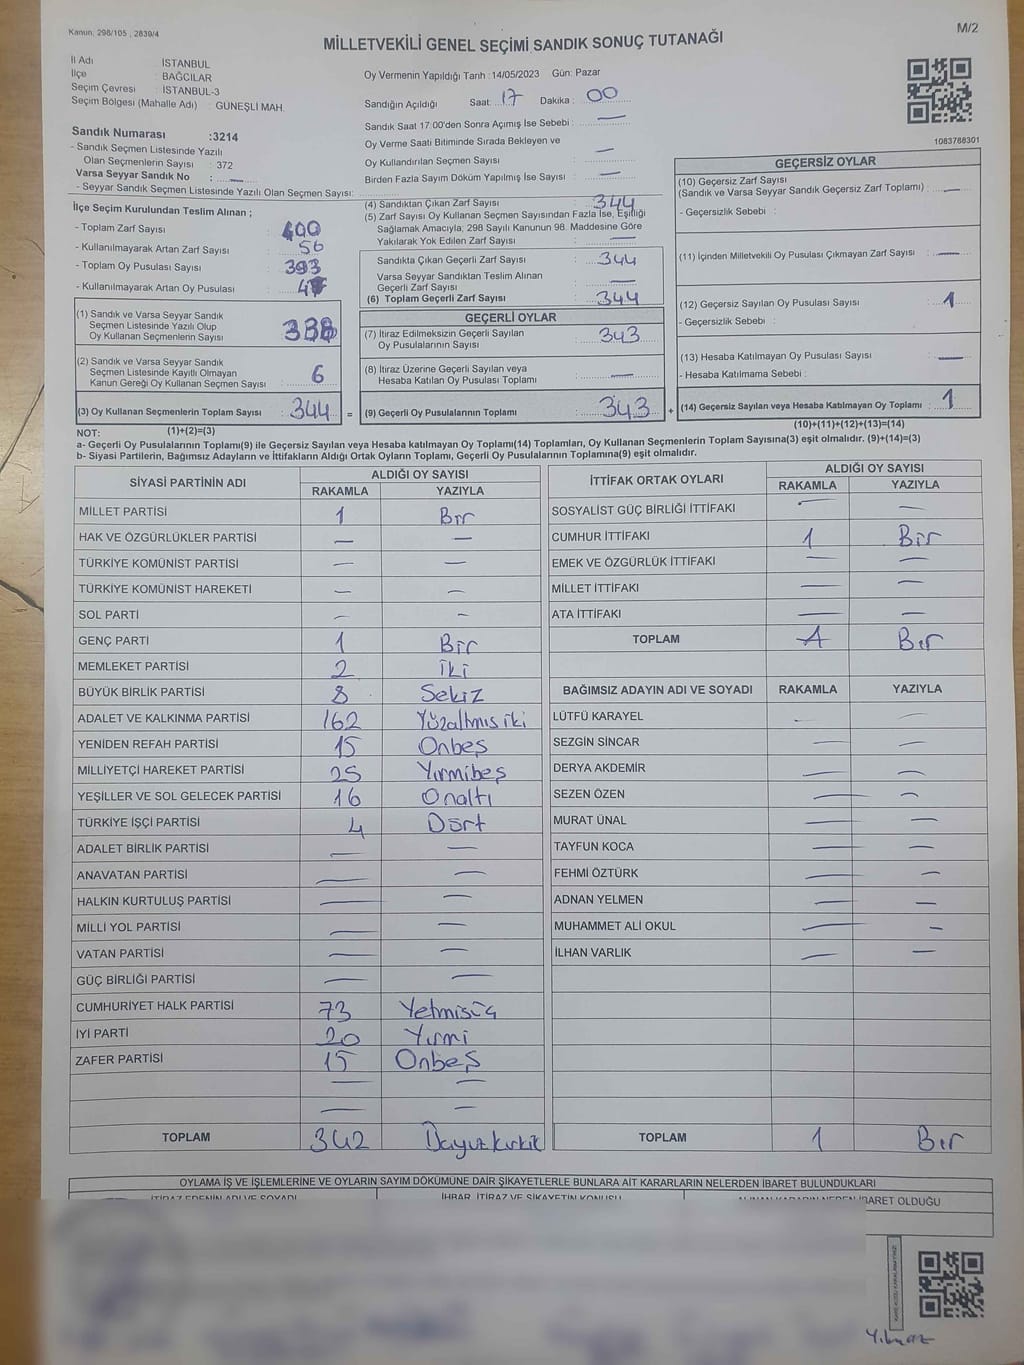 Kanun, 298/105 , 2839/4
M/2
MİLLETVEKİLİ GENEL SEÇİMİ SANDIK SONUÇ TUTANAĞI
İl Adı : İSTANBUL
İlçe : BAĞCILAR
Seçim Çevresi : İSTANBUL-3
Seçim Bölgesi (Mahalle Adı) : GÜNEŞLİ MAH.
Sandık Numarası :3214
- Sandık Seçmen Listesinde Yazılı
Olan Seçmenlerin Sayısı : 372
Varsa Seyyar Sandık No : —
- Seyyar Sandık Seçmen Listesinde Yazılı Olan Seçmen Sayısı:
Oy Vermenin Yapıldığı Tarih :14/05/2023 Gün: Pazar
Sandığın Açıldığı Saat: 17 Dakika : 00
Sandık Saat 17:00'den Sonra Açımış İse Sebebi : —
Oy Verme Saati Bitiminde Sırada Bekleyen ve
Oy Kullandırılan Seçmen Sayısı : —
Birden Fazla Sayım Döküm Yapılmış İse Sayısı : —
1083788301
İlçe Seçim Kurulundan Teslim Alınan ;
- Toplam Zarf Sayısı : 400
- Kullanılmayarak Artan Zarf Sayısı : 56
- Toplam Oy Pusulası Sayısı : 393
- Kullanılmayarak Artan Oy Pusulası :
(1) Sandık ve Varsa Seyyar Sandık
Seçmen Listesinde Yazılı Olup
Oy Kullanan Seçmenlerin Sayısı : 338
(2) Sandık ve Varsa Seyyar Sandık
Seçmen Listesinde Kayıtlı Olmayan
Kanun Gereği Oy Kullanan Seçmen Sayısı : 6
(3) Oy Kullanan Seçmenlerin Toplam Sayısı : 344 =
(1)+(2)=(3)
(4) Sandıktan Çıkan Zarf Sayısı : 344
(5) Zarf Sayısı Oy Kullanan Seçmen Sayısından Fazla İse, Eşitliği
Sağlamak Amacıyla, 298 Sayılı Kanunun 98. Maddesine Göre
Yakılarak Yok Edilen Zarf Sayısı : —
Sandıkta Çıkan Geçerli Zarf Sayısı : 344
Varsa Seyyar Sandıktan Teslim Alınan
Geçerli Zarf Sayısı : —
(6) Toplam Geçerli Zarf Sayısı : 344
GEÇERLİ OYLAR
(7) İtiraz Edilmeksizin Geçerli Sayılan
Oy Pusulalarının Sayısı : 343
(8) İtiraz Üzerine Geçerli Sayılan veya
Hesaba Katılan Oy Pusulası Toplamı : —
(9) Geçerli Oy Pusulalarının Toplamı : 343 +
GEÇERSİZ OYLAR
(10) Geçersiz Zarf Sayısı
(Sandık ve Varsa Seyyar Sandık Geçersiz Zarf Toplamı) : —
- Geçersizlik Sebebi :
(11) İçinden Milletvekili Oy Pusulası Çıkmayan Zarf Sayısı : —
(12) Geçersiz Sayılan Oy Pusulası Sayısı : 1
- Geçersizlik Sebebi :
(13) Hesaba Katılmayan Oy Pusulası Sayısı : —
- Hesaba Katılmama Sebebi :
(14) Geçersiz Sayılan veya Hesaba Katılmayan Oy Toplamı : 1
(10)+(11)+(12)+(13)=(14)
NOT:
a- Geçerli Oy Pusulalarının Toplamı(9) ile Geçersiz Sayılan veya Hesaba katılmayan Oy Toplamı(14) Toplamları, Oy Kullanan Seçmenlerin Toplam Sayısına(3) eşit olmalıdır. (9)+(14)=(3)
b- Siyasi Partilerin, Bağımsız Adayların ve İttifakların Aldığı Ortak Oyların Toplamı, Geçerli Oy Pusulalarının Toplamına(9) eşit olmalıdır.
SİYASİ PARTİNİN ADI ALDIĞI OY SAYISI
RAKAMLA YAZIYLA
MİLLET PARTİSİ 1 Bir
HAK VE ÖZGÜRLÜKLER PARTİSİ — —
TÜRKİYE KOMÜNİST PARTİSİ — —
TÜRKİYE KOMÜNİST HAREKETİ — —
SOL PARTİ — —
GENÇ PARTİ 1 Bir
MEMLEKET PARTİSİ 2 İki
BÜYÜK BİRLİK PARTİSİ 8 Sekiz
ADALET VE KALKINMA PARTİSİ 162 Yüzaltmış iki
YENİDEN REFAH PARTİSİ 15 Onbeş
MİLLİYETÇİ HAREKET PARTİSİ 25 Yırmibeş
YEŞİLLER VE SOL GELECEK PARTİSİ 16 Onaltı
TÜRKİYE İŞÇİ PARTİSİ 4 Dört
ADALET BİRLİK PARTİSİ — —
ANAVATAN PARTİSİ — —
HALKIN KURTULUŞ PARTİSİ — —
MİLLİ YOL PARTİSİ — —
VATAN PARTİSİ — —
GÜÇ BİRLİĞİ PARTİSİ — —
CUMHURİYET HALK PARTİSİ 73 Yetmişüç
İYİ PARTİ 20 Yırmi
ZAFER PARTİSİ 15 Onbeş
— —
— —
TOPLAM 342
İTTİFAK ORTAK OYLARI ALDIĞI OY SAYISI
RAKAMLA YAZIYLA
SOSYALİST GÜÇ BİRLİĞİ İTTİFAKI — —
CUMHUR İTTİFAKI 1 Bir
EMEK VE ÖZGÜRLÜK İTTİFAKI — —
MİLLET İTTİFAKI — —
ATA İTTİFAKI — —
TOPLAM 1 Bır
BAĞIMSIZ ADAYIN ADI VE SOYADI RAKAMLA YAZIYLA
LÜTFÜ KARAYEL — —
SEZGİN SİNCAR — —
DERYA AKDEMİR — —
SEZEN ÖZEN — —
MURAT ÜNAL — —
TAYFUN KOCA — —
FEHMİ ÖZTÜRK — —
ADNAN YELMEN — —
MUHAMMET ALİ OKUL — —
İLHAN VARLIK — —
TOPLAM 1 Bır
OYLAMA İŞ VE İŞLEMLERİNE VE OYLARIN SAYIM DÖKÜMÜNE DAİR ŞİKAYETLERLE BUNLARA AİT KARARLARIN NELERDEN İBARET BULUNDUKLARI
İTİRAZ EDENİN ADI VE SOYADI İHBAR, İTİRAZ VE ŞİKAYETİN KONUSU ALINAN KARARIN NEDEN İBARET OLDUĞU
Yılmaz